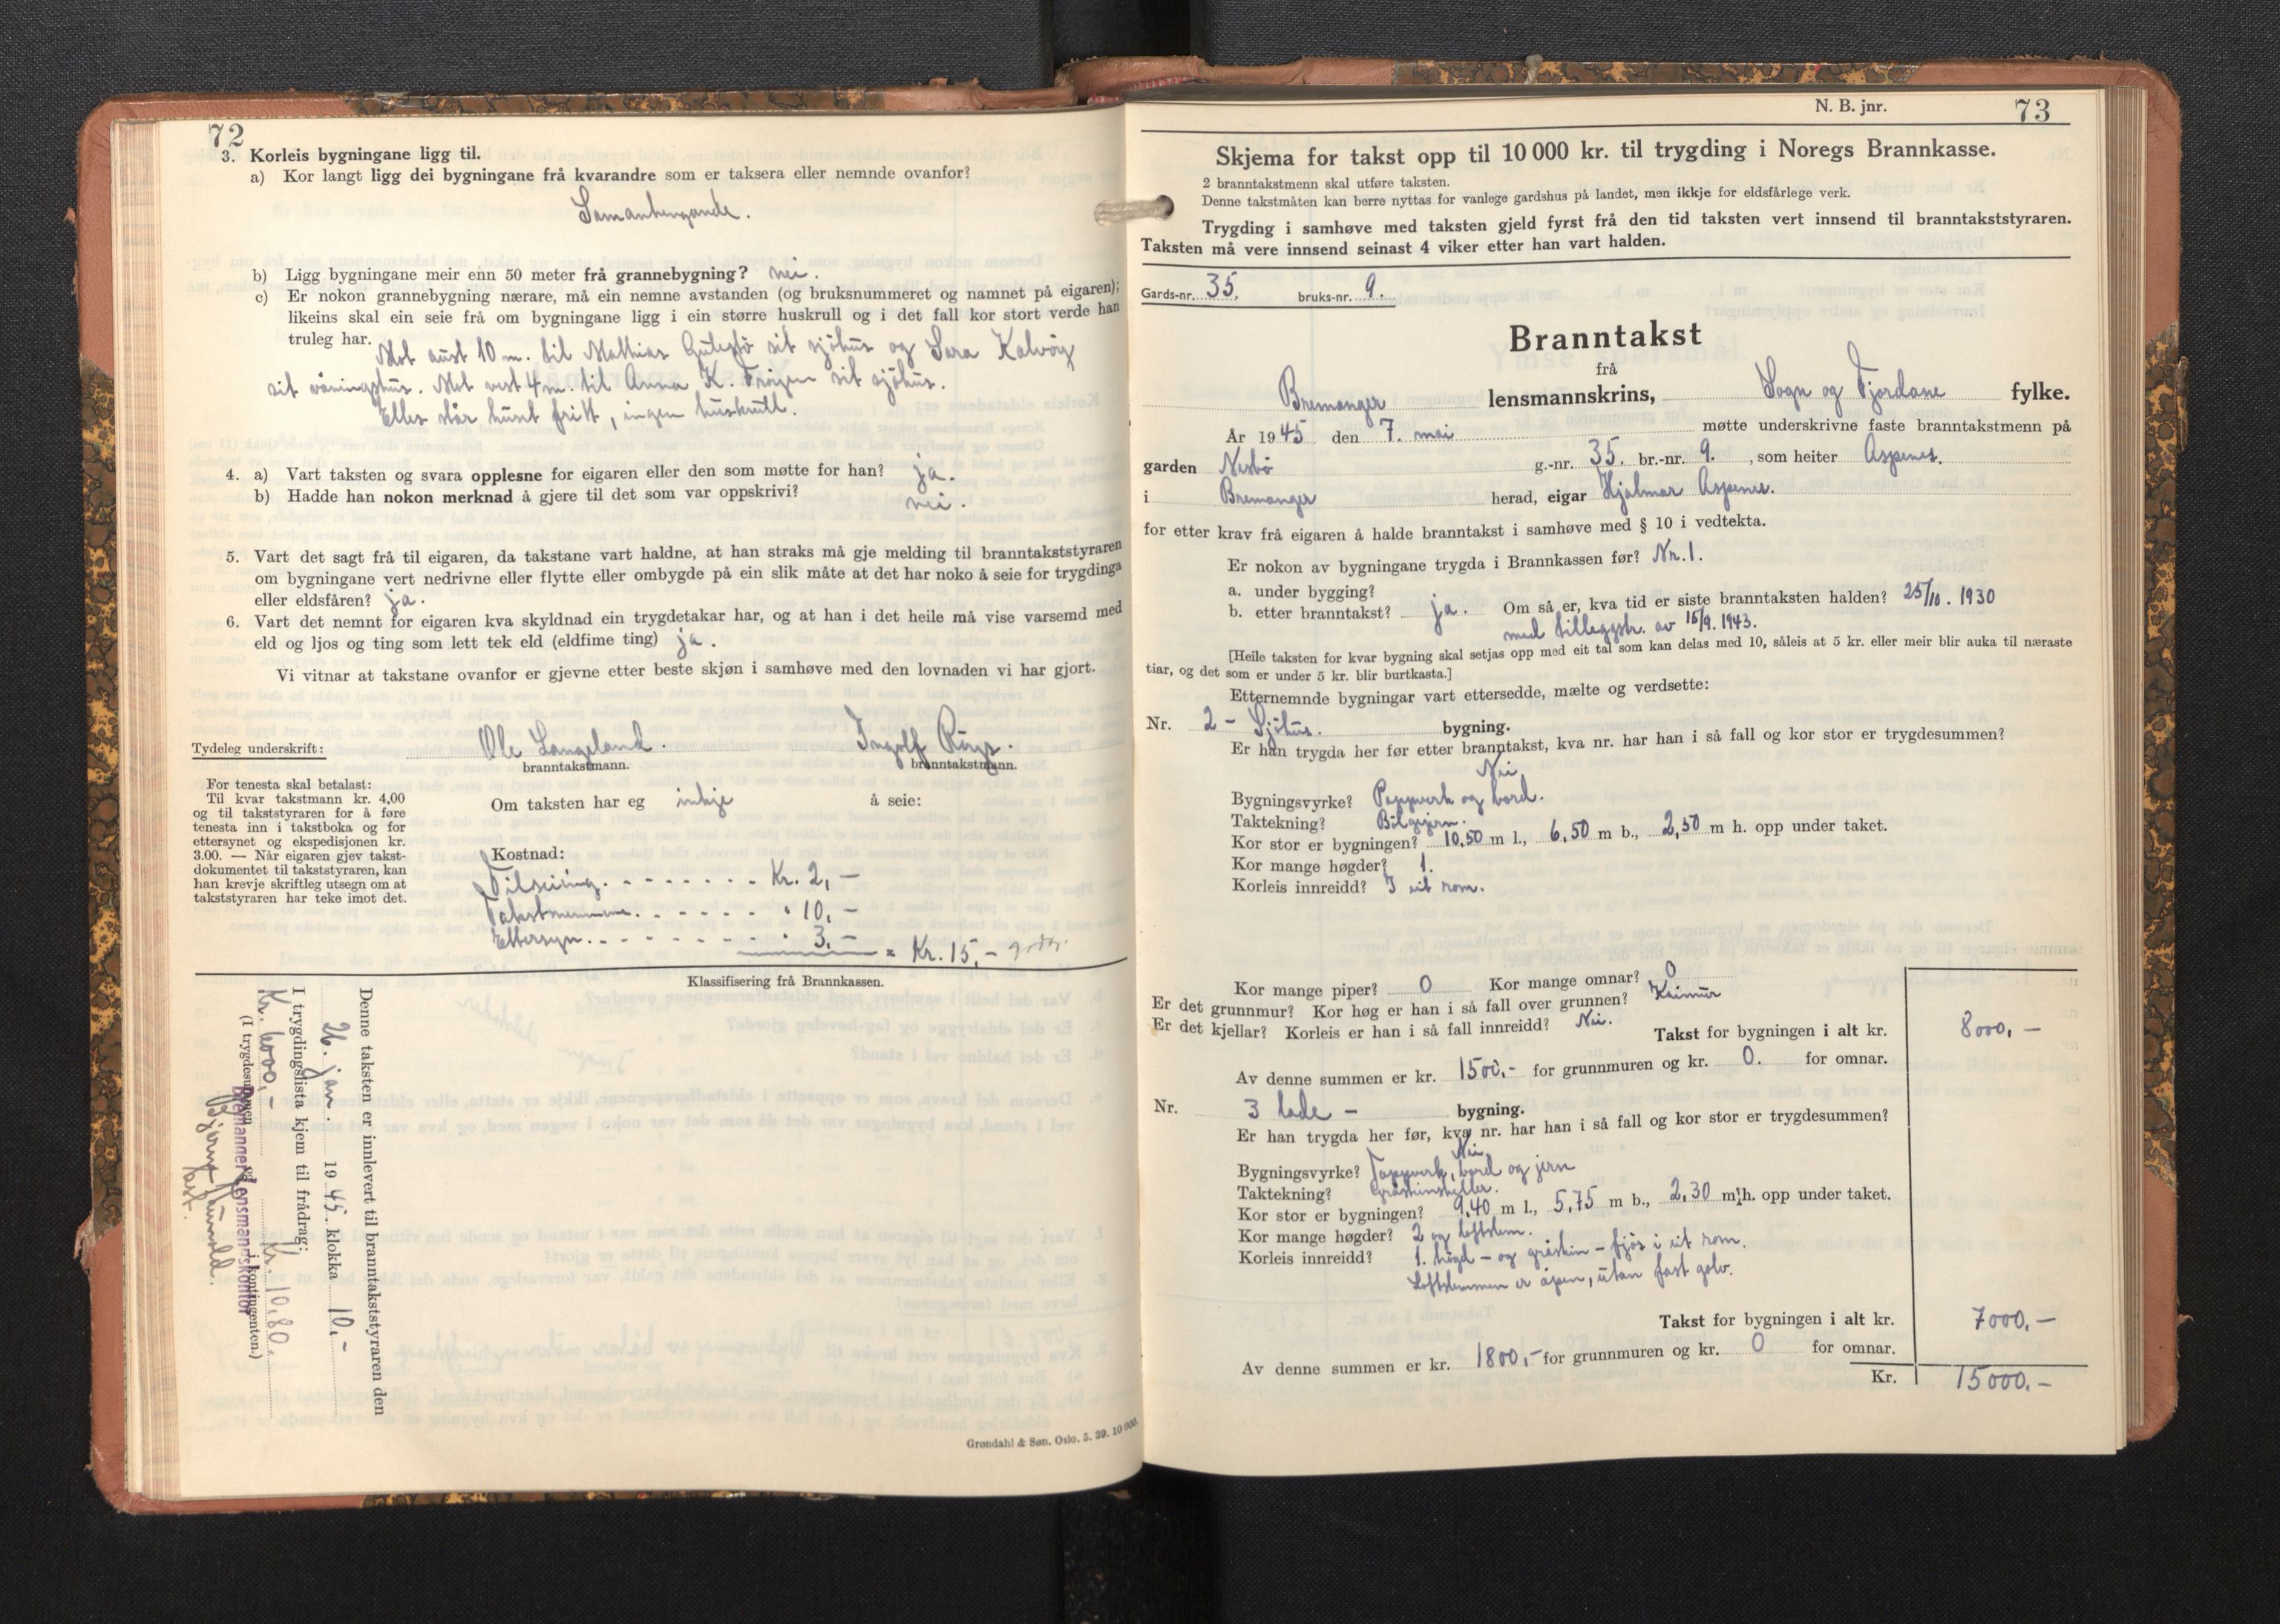 72
3. Korleis bygningane ligg til.
a) Kor langt ligg dei bygningane frå kvarandre som er taksera eller nemnde ovanfor?
Samanhengande.
b) Ligg bygningane meir enn 50 meter frå grannebygning? nei.
c) Er nokon grannebygning nærare, må ein nemne avstanden (og bruksnummeret og namnet på eigaren);
likeins skal ein seie frå om bygningane ligg i ein større huskrull og i det fall kor stort verde han
truleg har.
Mot aust 10 m. til Mathias Gulesbø sit sjøhus og Sara Kalvøy
sit våningshus. Mot vest 4 m. til Anna K. Frøyen sit sjøhus.
Elles står huset fritt, ingen huskrull.
4. a) Vart taksten og svara opplesne for eigaren eller den som møtte for han? ja.
b) Hadde han nokon merknad å gjere til det som var oppskrivi? nei.
5. Vart det sagt frå til eigaren, da takstane vart haldne, at han straks må gje melding til branntakststyraren
om bygningane vert nedrivne eller flytte eller ombygde på ein slik måte at det har noko å seie for trygdinga
eller eldsfåren? ja.
6. Vart det nemnt for eigaren kva skyldnad ein trygdetakar har, og at han i det heile må vise varsemd med
eld og ljos og ting som lett tek eld (eldfime ting) ja.
Vi vitnar at takstane ovanfor er gjevne etter beste skjøn i samhøve med den lovnaden vi har gjort.
Tydeleg underskrift: Ole Langeland. Ingolf Røys.
branntakstmann. branntakstmann.
For tenesta skal betalast:
Til kvar takstmann kr. 4,00
og til takststyraren for å føre
tenesta inn i takstboka og for
ettersynet og ekspedisjonen kr.
3.00. — Når eigaren gjev takst-
dokumentet til takststyraren, kan
han krevje skriftleg utsegn om at
takststyraren har teke imot det.
Om taksten har eg inkje å seie:
Kostnad:
Tilseiing. . . . . . . . Kr. 2,—
Takstmennene. . . . . . " 10,—
Ettersyn. . . . . . . . " 3,—
= Kr. 15,—
Klassifisering frå Brannkassen.
Denne taksten er innlevert til branntakststyraren den
26. jan. 1945. klokka 10,-
I trygdingslista kjem til frådrag:
Kr. 6000,- Kr. 10,80.
(I trygdesummen og i kontingenten.)
Bremanger lensmannskontor
asst.
Grøndahl & Søn, Oslo. 5. 39. 10 000.
N. B. jnr. 73
Skjema for takst opp til 10 000 kr. til trygding i Noregs Brannkasse.
2 branntakstmenn skal utføre taksten.
Denne takstmåten kan berre nyttas for vanlege gardshus på landet, men ikkje for eldsfårlege verk.
Trygding i samhøve med taksten gjeld fyrst frå den tid taksten vert innsend til branntakststyraren.
Taksten må vere innsend seinast 4 viker etter han vart halden.
Gards-nr. 35. bruks-nr. 9.
Branntakst
frå
Bremanger lensmannskrins, Sogn og Fjordane fylke.
År 1945 den 7. mai møtte underskrivne faste branntakstmenn på
garden Nesbø g.-nr. 35. br.-nr. 9. , som heiter Aspenes.
i Bremanger herad, eigar Hjalmar Aspenes.
for etter krav frå eigaren å halde branntakst i samhøve med § 10 i vedtekta.
Er nokon av bygningane trygda i Brannkassen før? Nr. 1.
a. under bygging?
b. etter branntakst? ja. Om så er, kva tid er siste branntaksten halden? 25/10. 1930
med tilleggstr. av 15/9. 1943.
[Heile taksten for kvar bygning skal setjas opp med eit tal som kan delas med 10, såleis at 5 kr. eller meir blir auka til næraste
tiar, og det som er under 5 kr. blir burtkasta.]
Etternemnde bygningar vart ettersedde, mælte og verdsette:
Nr. 2 - Sjøhus. bygning.
Er han trygda her før etter branntakst, kva nr. har han i så fall og kor stor er trygdesummen?
Nei
Bygningsvyrke? Pappverk og bord.
Taktekning? Bølgejern.
Kor stor er bygningen? 10,50 m l., 6,50 m b., 2,50 m h. opp under taket.
Kor mange høgder? 1.
Korleis innreidd? I eit rom.
Kor mange piper? 0 Kor mange omnar? 0
Er det grunnmur? Kor høg er han i så fall over grunnen? Kaimur
Er det kjellar? Korleis er han i så fall innreidd? Nei.
Takst for bygningen i alt kr. 8000,—
Av denne summen er kr. 1500,- for grunnmuren og kr. 0. for omnar.
Nr. 3 lade - bygning.
Er han trygda her før, kva nr. har han i så fall og kor stor er trygdesummen?
Nei
Bygningsvyrke? Pappverk, bord og jern
Taktekning? Gråsteinsheller.
Kor stor er bygningen? 9,40 m l., 5,75 m b., 2,30 m h. opp under taket.
Kor mange høgder? 2 og loftslem.
Korleis innreidd? 1. høgd - og gråstein - fjøs i eit rom.
Loftslemmen er åpen, utan fast golv.
Takst for bygningen i alt kr. 7000,—
Av denne summen er kr. 1800,- for grunnmuren og kr. 0 for omnar.
Kr. 15000,—